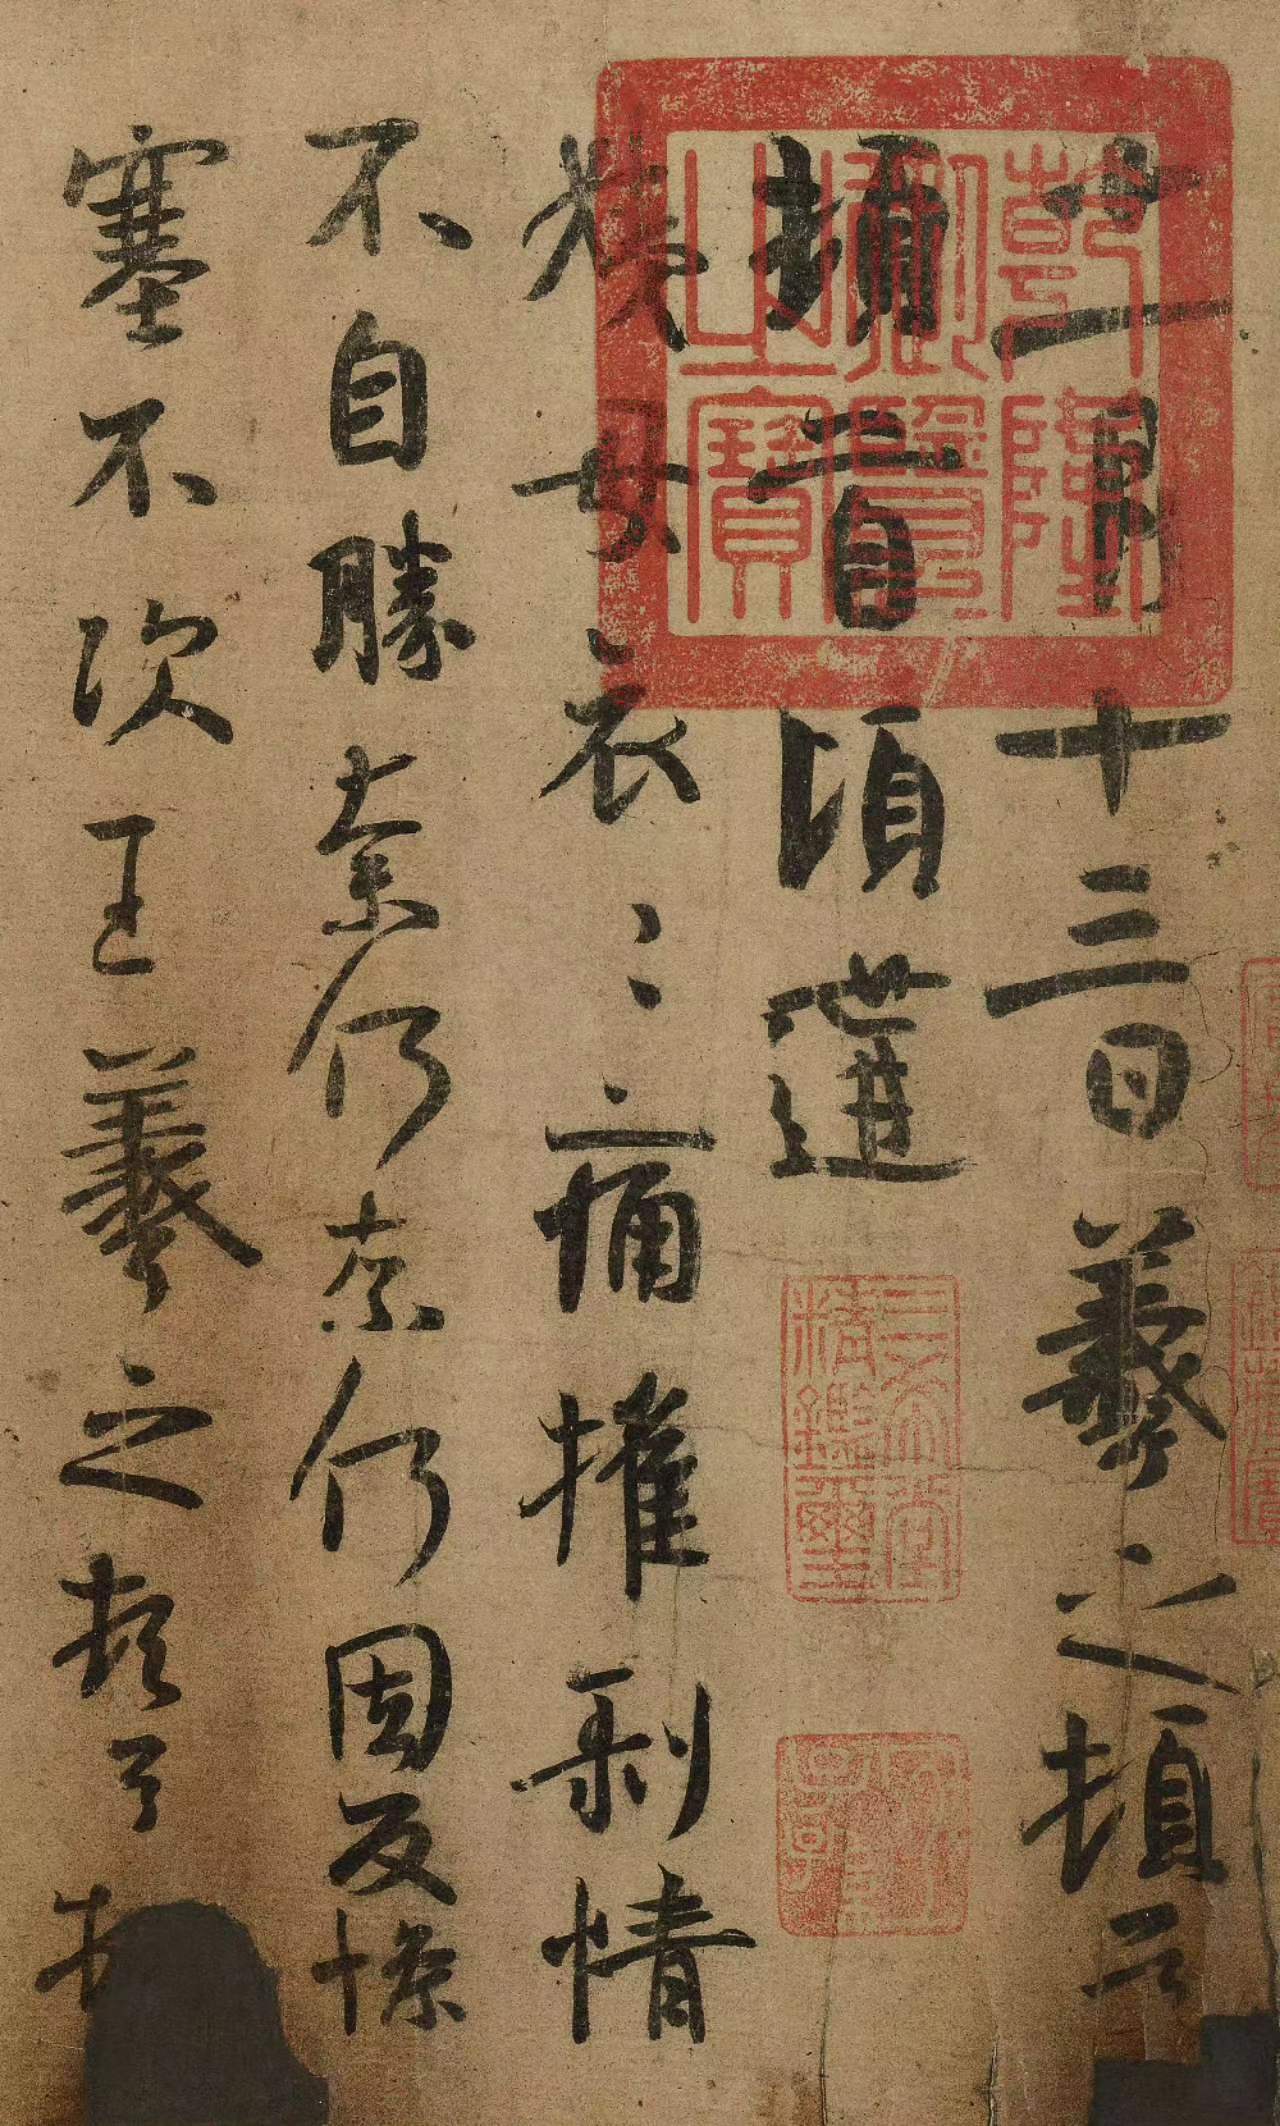 十一月十三日羲之頓首
頓首頃遘
姨母哀〻痛摧剝情
不自勝奈何奈何因反慘
塞不次王羲之頓首
乾隆御覽之寶
三希堂精鑑璽
宜子孫